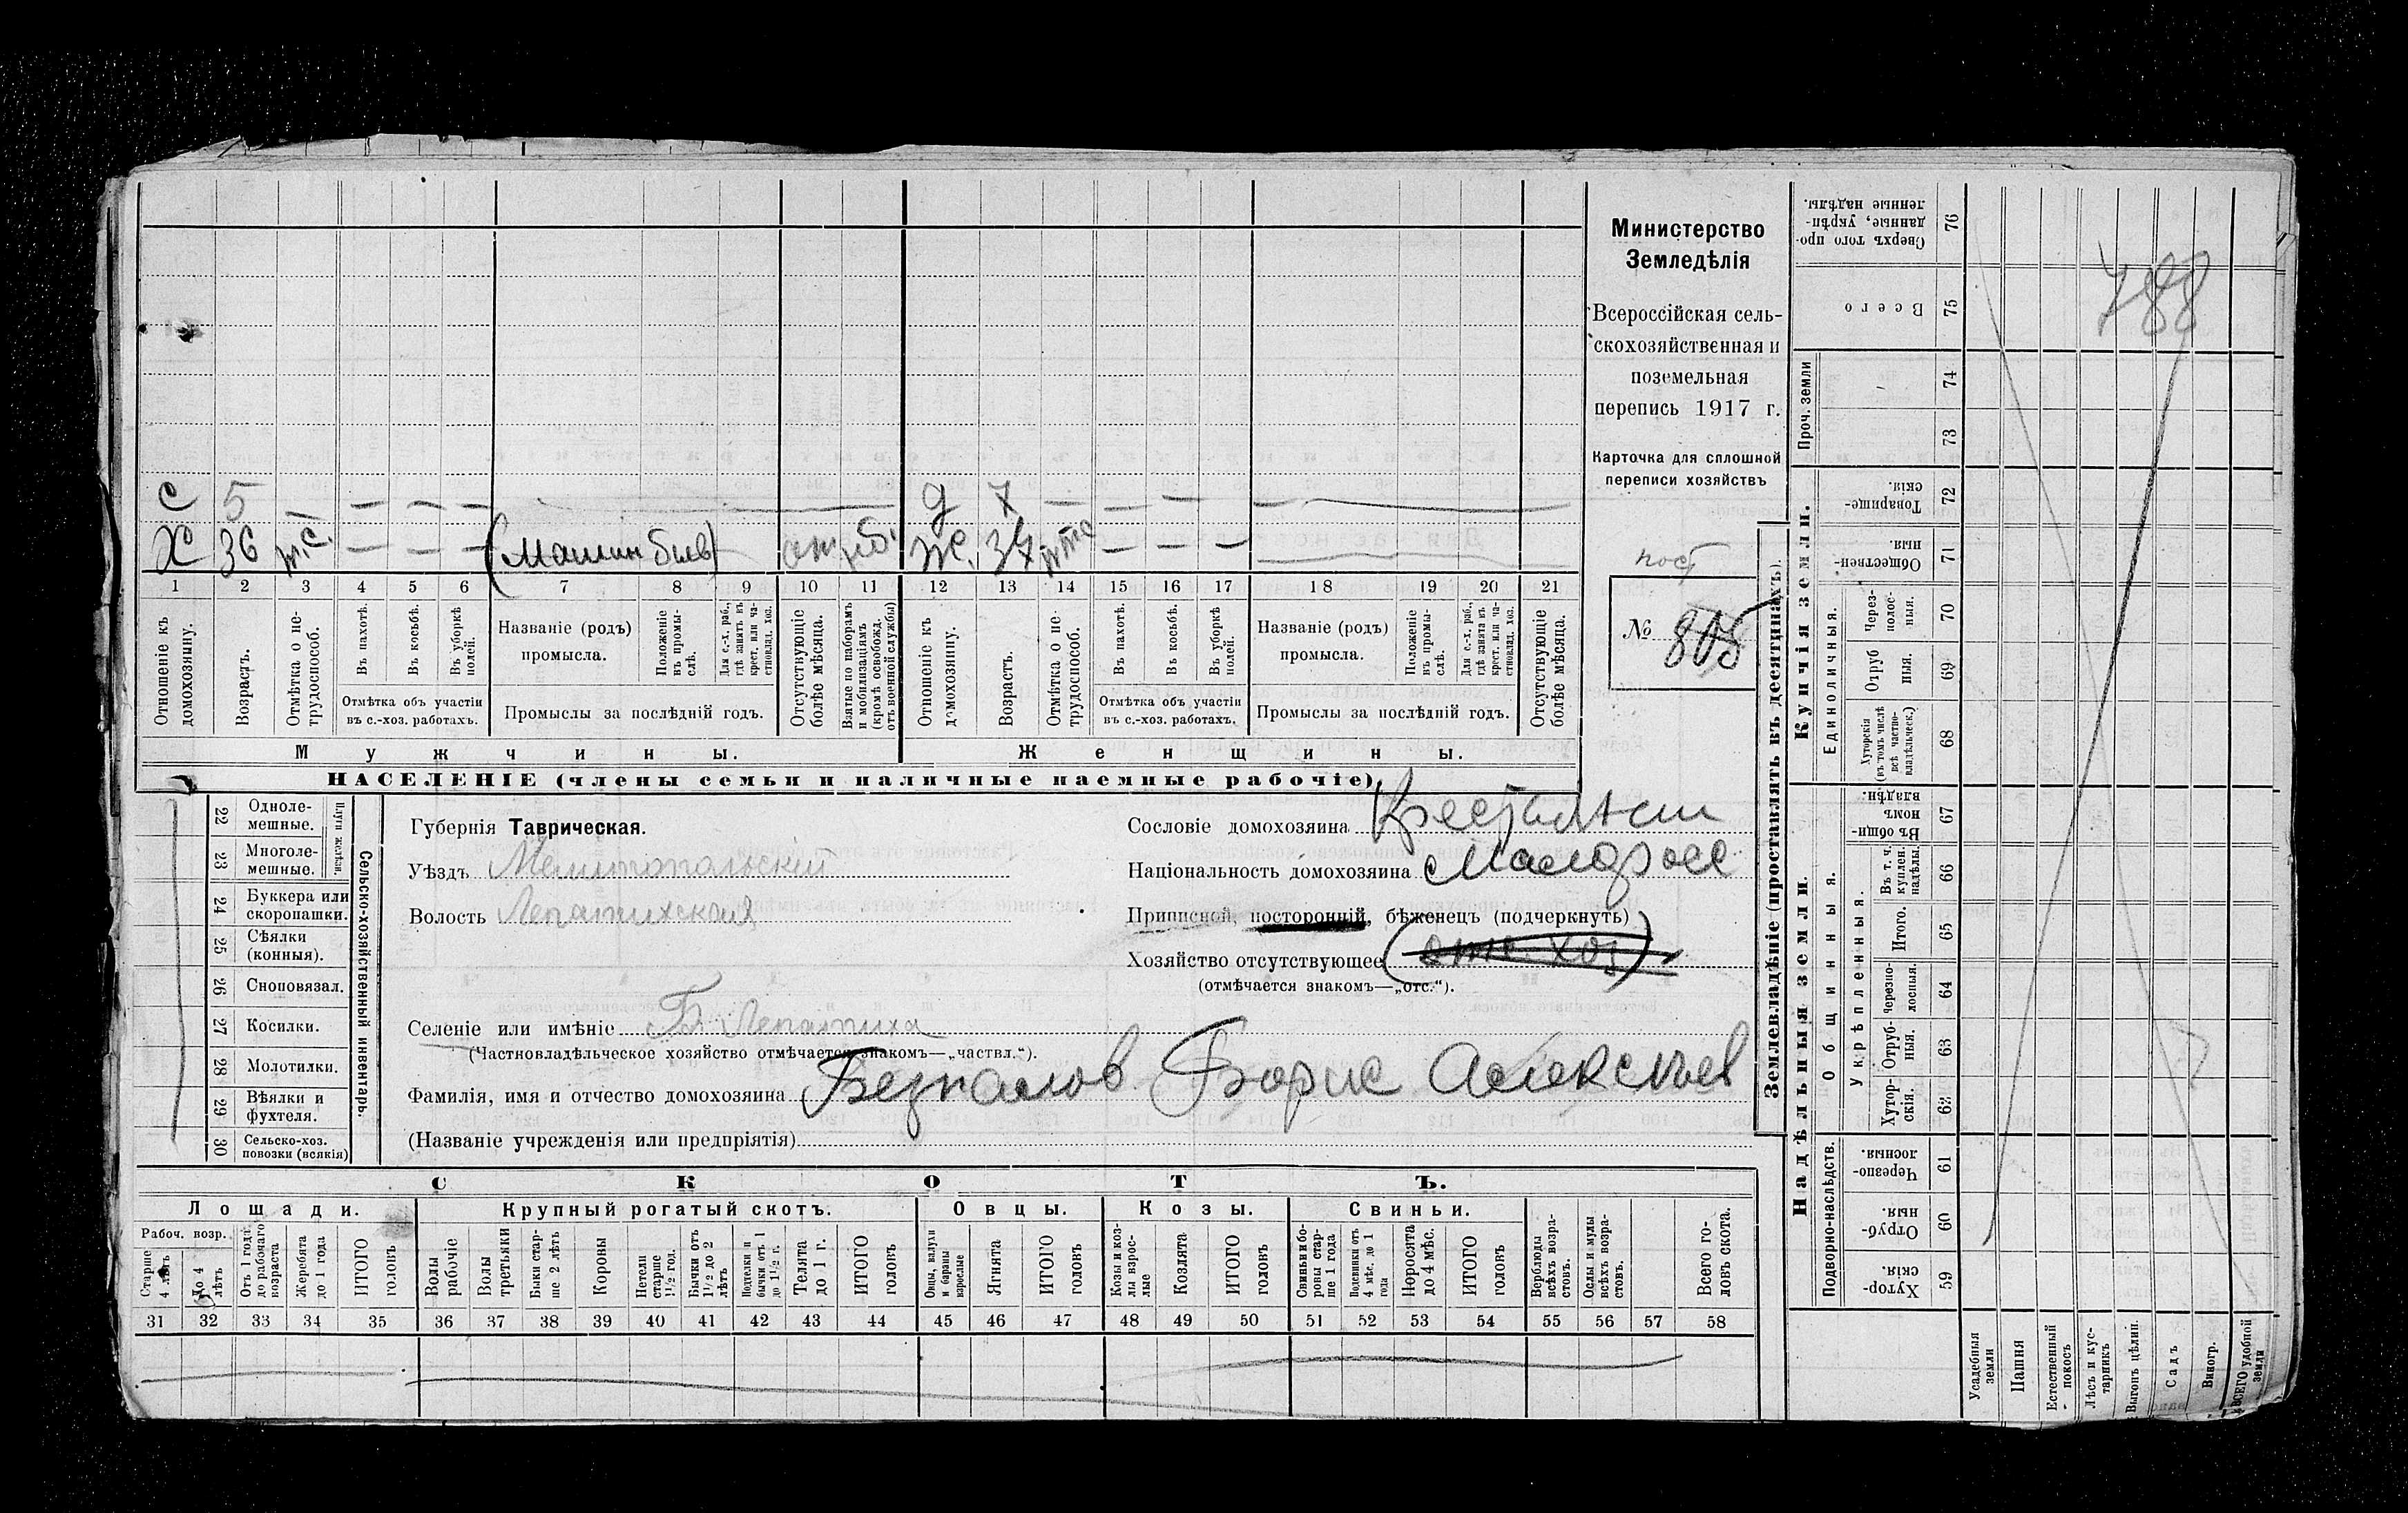 с 5 — — — — д 7 — — — — —
Х 36 — — — (Машин быв) Ж. — — —
1 2 3 4 5 6 7 8 9 10 11 12 13 14 15 16 17 18 19 20 21
Отношеніе къ домохозяину.
Возрастъ.
Отмѣтка о нетрудоспособ.
Въ пахотѣ.
Въ косьбѣ.
Въ уборкѣ полей.
Отмѣтка объ участіи
въ с.-хоз. работахъ.
Названіе (родъ)
промысла.
Положеніе въ промыслѣ.
Для с.-х. раб., гдѣ занятъ въ крест. или частновлад. хоз.
Промыслы за послѣдній годъ.
Отсутствующіе болѣе мѣсяца.
Взятые по наборамъ и мобилизаціямъ (кромѣ освобожд. отъ военной службы)
Отношеніе къ домохозяину.
Возрастъ.
Отмѣтка о нетрудоспособ.
Въ пахотѣ.
Въ косьбѣ.
Въ уборкѣ полей.
Отмѣтка объ участіи
въ с.-хоз. работахъ.
Названіе (родъ)
промысла.
Положеніе въ промыслѣ.
Для с.-х. раб., гдѣ занята въ крест. или частновлад. хоз.
Промыслы за послѣдній годъ.
Отсутствующіе болѣе мѣсяца.
Мужчины.
Женщины.
НАСЕЛЕНІЕ (члены семьи и наличные наемные рабочіе).
Министерство
Земледѣлія
Всероссійская сель-
скохозяйственная и
поземельная
перепись 1917 г.
Карточка для сплошной
переписи хозяйствъ
пост
№ 805
22 Однолемешные.
23 Многолемешные.
Плуги желѣзн.
24 Буккера или скоропашки.
25 Сѣялки (конныя).
26 Сноповязал.
27 Косилки.
28 Молотилки.
29 Вѣялки и фухтеля.
30 Сельско-хоз. повозки (всякія)
Сельско-хозяйственный инвентарь.
Губернія Таврическая.
Уѣздъ Мелитопольскій
Волость Лепатихская
Селеніе или имѣніе Б Лепатиха
(Частновладѣльческое хозяйство отмѣчается знакомъ—„частвл.“).
Фамилія, имя и отчество домохозяина Безпалов Борис Алексѣев
(Названіе учрежденія или предпріятія)
Сословіе домохозяина Крестьянин
Національность домохозяина Малоросс
Приписной посторонній, бѣженецъ (подчеркнуть)
Хозяйство отсутствующее (отс. хоз)
(отмѣчается знакомъ—„отс.“).
СКОТЪ.
Лошади.
Рабоч. возр.
Старше 4 лѣтъ
До 4 лѣтъ
Отъ 1 года до рабочаго возраста
Жеребята до 1 года
ИТОГО головъ
Крупный рогатый скотъ.
Волы рабочіе
Волы третьяки
Быки старше 2 лѣтъ
Коровы
Нетели старше 1½ год.
Бычки отъ 1½ до 2 лѣтъ
Подтелки и бычки отъ 1 до 1½ г.
Телята до 1 г.
ИТОГО головъ
Овцы.
Овцы, валухи и бараны взрослые
Ягнята
ИТОГО головъ
Козы.
Козы и козлы взрослые
Козлята
ИТОГО головъ
Свиньи.
Свиньи и боровы старше 1 года
Подсвинки отъ 4 мѣс. до 1 года
Поросята до 4 мѣс.
ИТОГО головъ
Верблюды всѣхъ возрастовъ.
Ослы и мулы всѣхъ возрастовъ.
Всего головъ скота.
31 32 33 34 35 36 37 38 39 40 41 42 43 44 45 46 47 48 49 50 51 52 53 54 55 56 57 58
Землевладѣніе (проставлять въ десятинахъ).
Купчія земли.
Надѣльныя земли.
Сверхъ того проданные, укрѣпленные надѣлы. 76
Всего 75
Проч. земли
74
73
Товарищескія. 72
Общественныя. 71
Единоличныя.
Черезполосныя. 70
Отрубныя. 69
Хуторскія (въ томъ числѣ всѣ частновладѣльческ.) 68
Общинныя.
Въ общинномъ владѣн. 67
Укрѣпленныя.
Въ т. ч. куплен. надѣлы. 66
Итого. 65
Черезполосныя. 64
Отрубныя. 63
Хуторскія. 62
Подворно-наслѣдств.
Черезполосныя. 61
Отрубныя. 60
Хуторскія. 59
Усадебныя земли
Пашня
Естественный покосъ
Лѣсъ и кустарникъ
Выгонъ цѣлин.
Садъ
Виногр.
ВСЕГО удобной земли
788